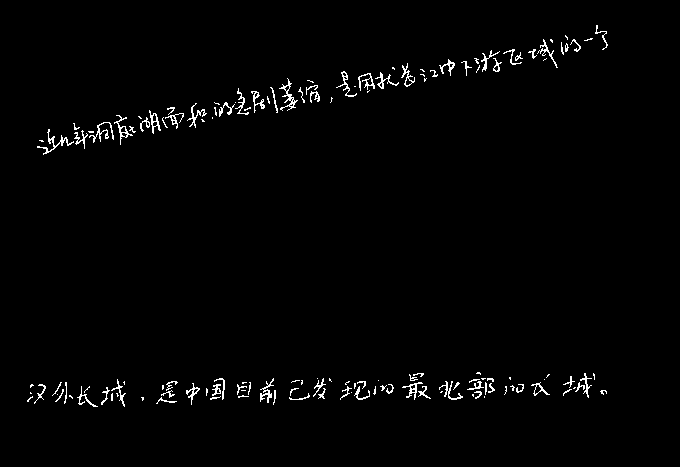 近几年洞庭湖面积的急剧萎缩,是困扰长江中下游区域的一个
汉外长城,是中国目前已发现的最北部的长城。